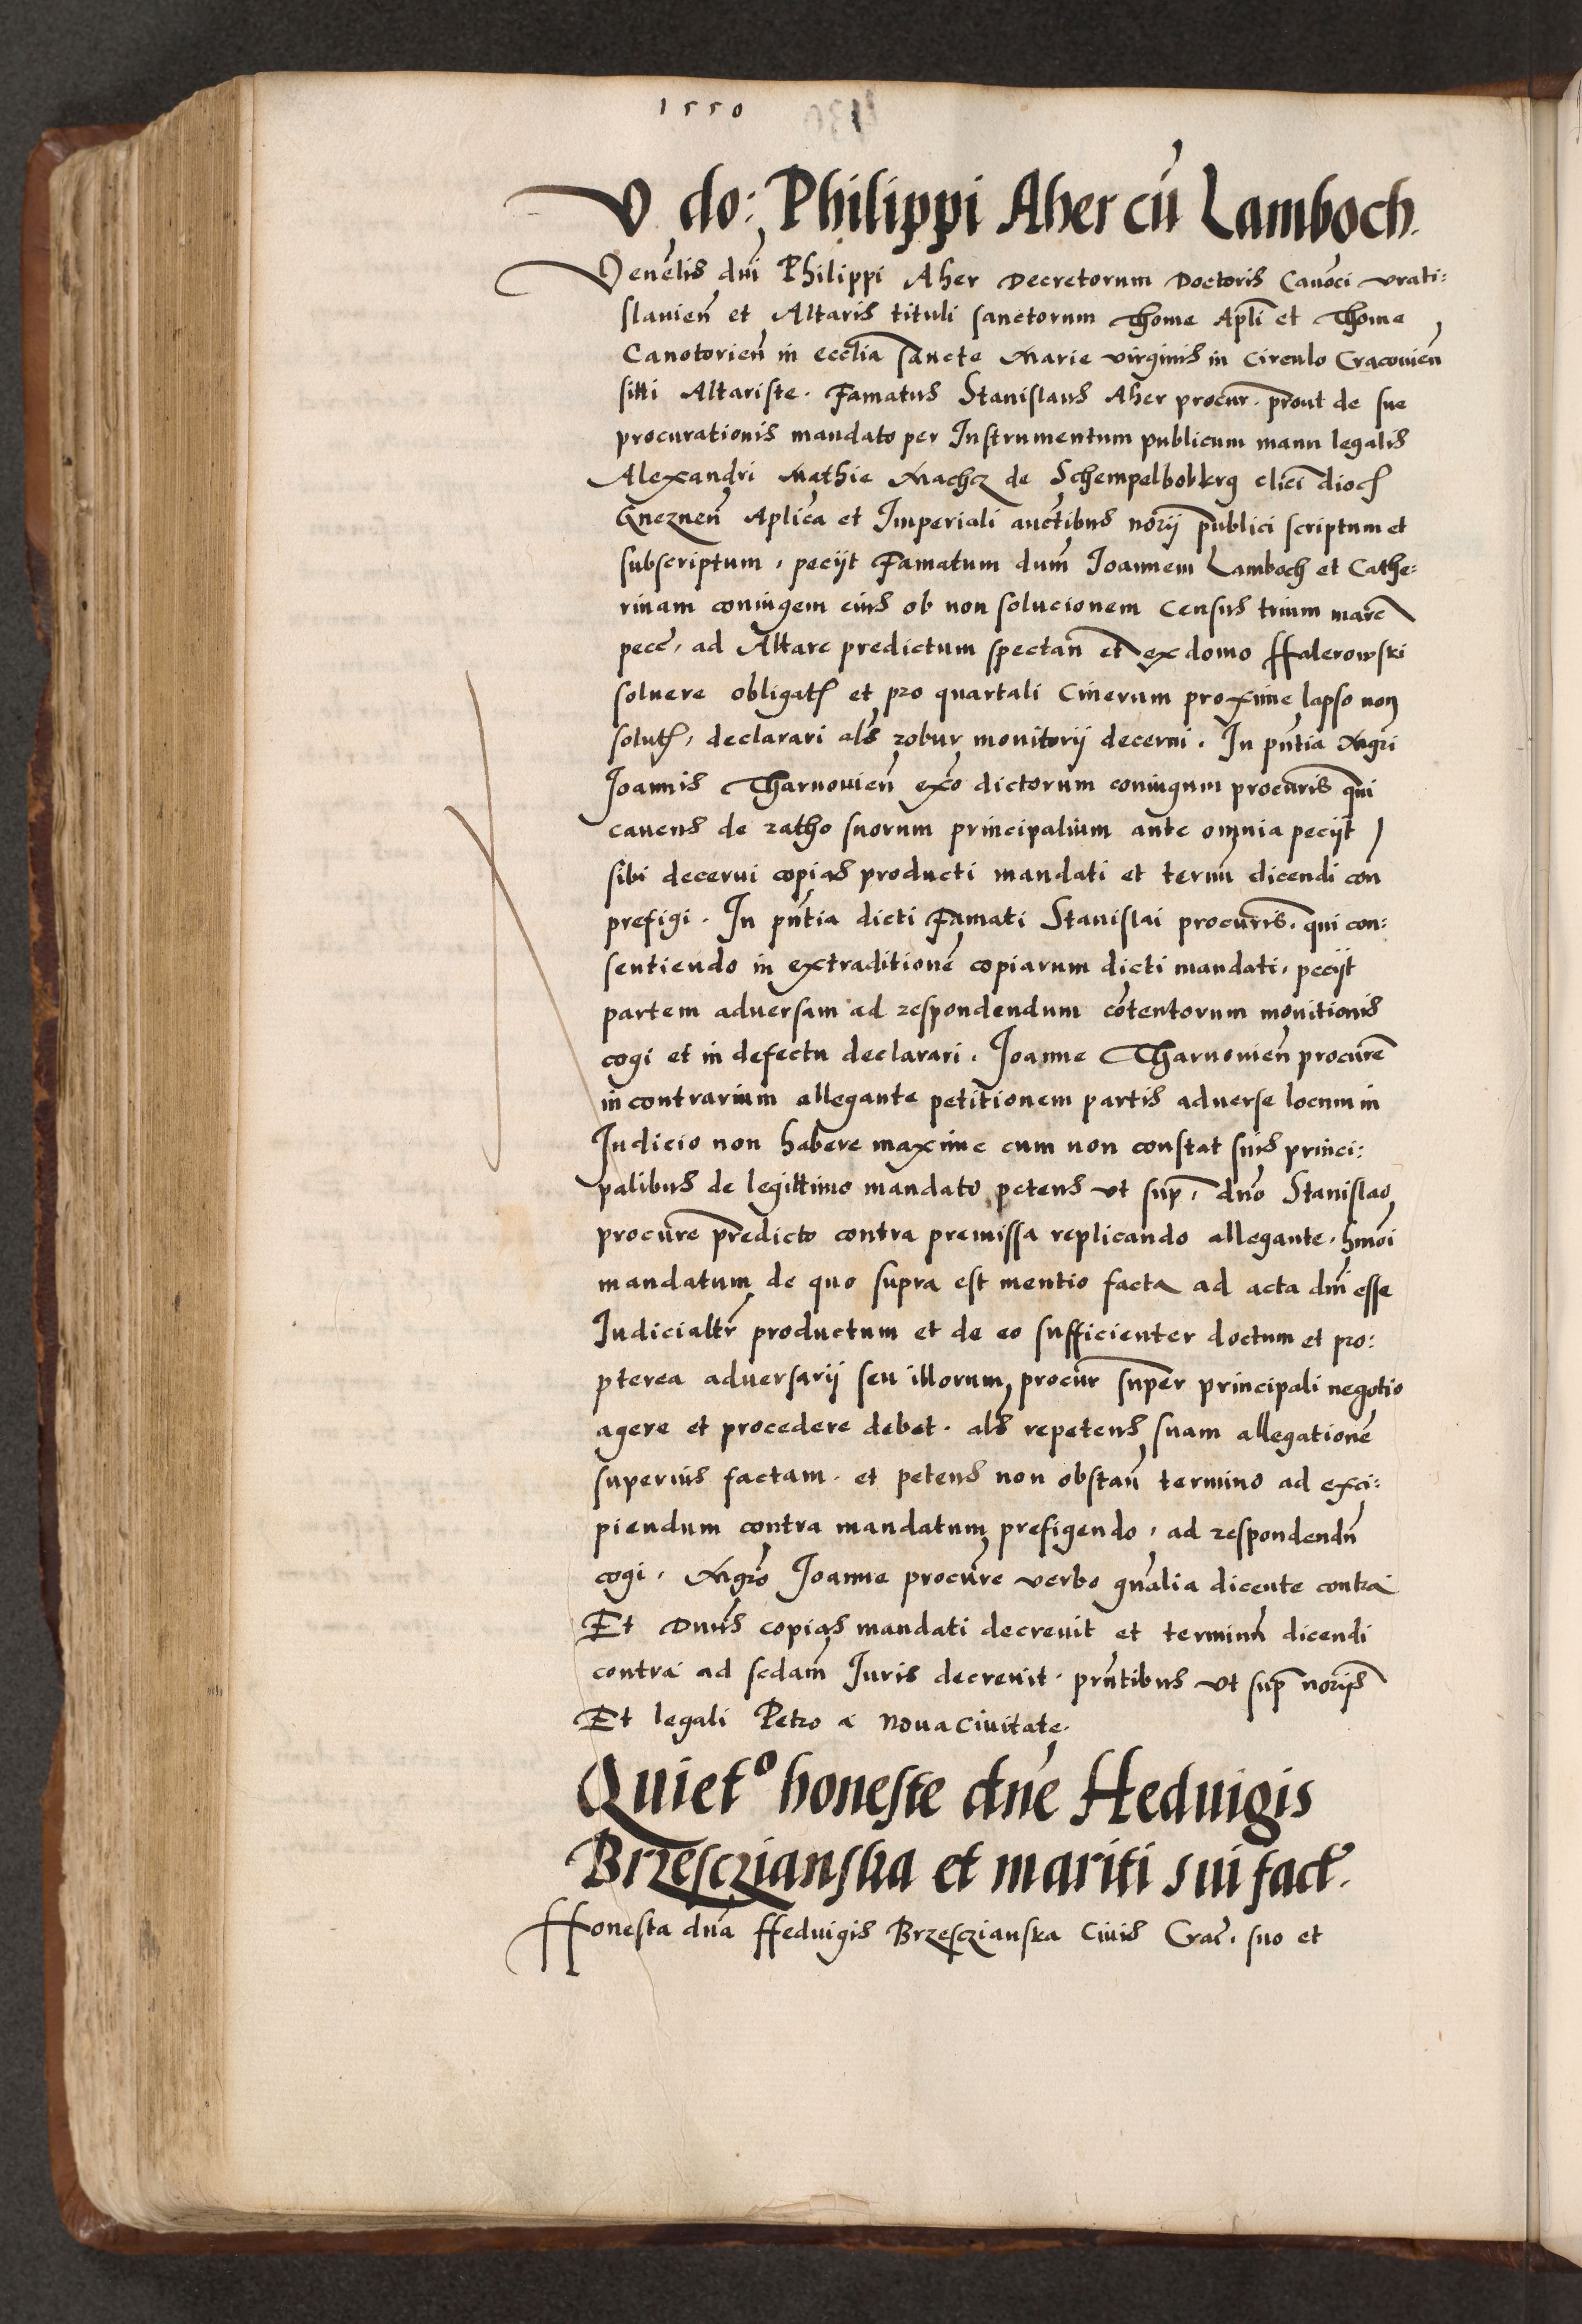 1550
V do: Philippi Aher cū Lamboch.
Venēlis dm̄i Philippi Aher Decretorum Doctoris Canōci vrati:
slauien̄ et Altaris tituli sanctorum Thome Apl̄i et Thome
Canotorien̄ in ecclīa sancte Marie virginis in Circulo Cracouien̄
sitti Altariste. Famatus Stanislaus Aher procūr. prout de sue
procurationis mandato per Instrumentum publicum manu legalis
Alexandri Mathie de Schempelbobberg clici dioc
Gneznen̄ Aplica et Imperiali auctibus norij publici scriptum et
subscriptum, pecijt Famatum dum̄ Joannem Lamboch et Cathe:
rinam coniugem eius ob non solucionem Census trium marc̄
pecc̄, ad Altare predictum spectan̄ et ex domo Halerowski
soluere obligat et pro quartali Cinerum proxime lapso non
solut, declarari als robur monitorij decerni. In pn̄tia Mgri
Joannis Tharnouien̄ ex̄o dictorum coniugum procūris qui
cauens de ratho suorum principalium ante omnia pecijt
sibi decerni copias producti mandati et termi dicendi con
prefigi. In pn̄tia dicti Famati Stanislai procūris. qui con:
sentiendo in extraditionē copiarum dicti mandati, pecijt
partem aduersam ad respondendum cōtentorum monitionis
cogi et in defectu declarari. Joanne Tharnouien̄ procūre
in contrarium allegante petitionem partis aduerse locum in
Judicio non habere maxime cum non constat suis princi:
palibus de legittimo mandato petens vt sup̄, dn̄o Stanislao
procūre predicto contra premissa replicando allegante. hmōi
mandatum de quo supra est mentio facta ad acta dn̄i esse
Judicialtr̄ productum et de eo sufficienter doctum et pro:
pterea aduersarij seu illorum procūr super principali negotio
agere et procedere debet. als repetens suam allegationē
superius factam. et petens non obstan̄ termino ad exci:
piendum contra mandatum prefigendo, ad respondendū
cogi. Mgrō Joanne procūre verbo gn̄alia dicente contra
Et Dnūs copias mandati decreuit et terminū dicendi
contra ad scdam̄ Juris decreuit. prn̄tibus vt sup̄ norijs
Et legali Petro a Noua Ciuitate.
Quietº honeste dn̄e Heduigis
Brzesczianska et mariti sui fact.
Honesta dn̄a Heduigis Brzesczianska Ciuis Crac̄. suo et